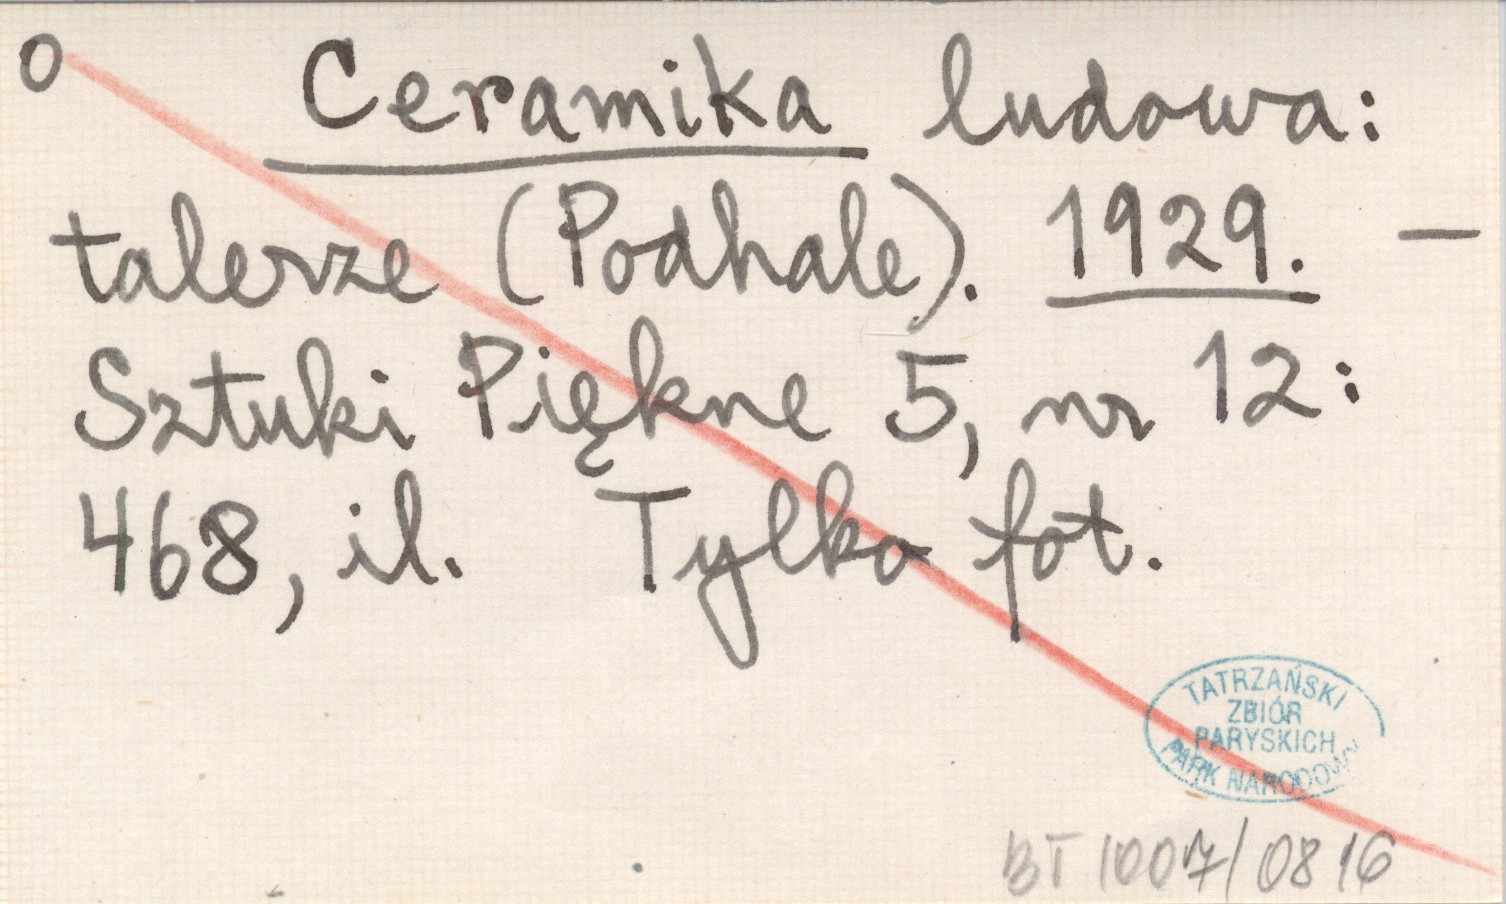 o Ceramika ludowa:
talerze (Podhale). 1929. —
Sztuki Piękne 5, nr 12:
468, il. Tylko fot.
TATRZAŃSKI
ZBIÓR
PARYSKICH
PARK NARODOWY
BT 1007/0816